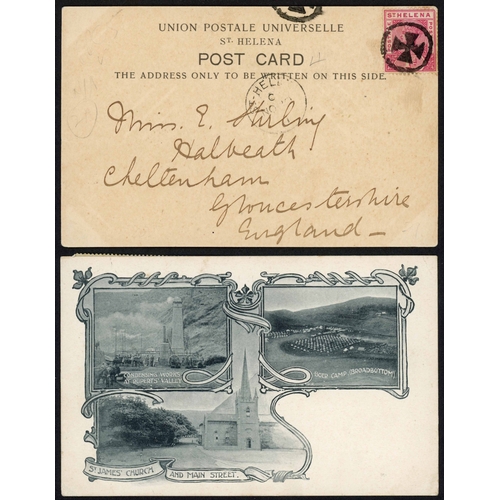 UNION POSTALE UNIVERSELLE
ST. HELENA
POST CARD
THE ADDRESS ONLY TO BE WRITTEN ON THIS SIDE.
ST HELENA
Miss. E. Stirling
Halbeath
Cheltenham
Gloucestershire
England
CONDENSING WORKS
RUPERTS' VALLEY
BOER CAMP (BROADBOTTOM)
ST JAMES' CHURCH AND MAIN STREET.